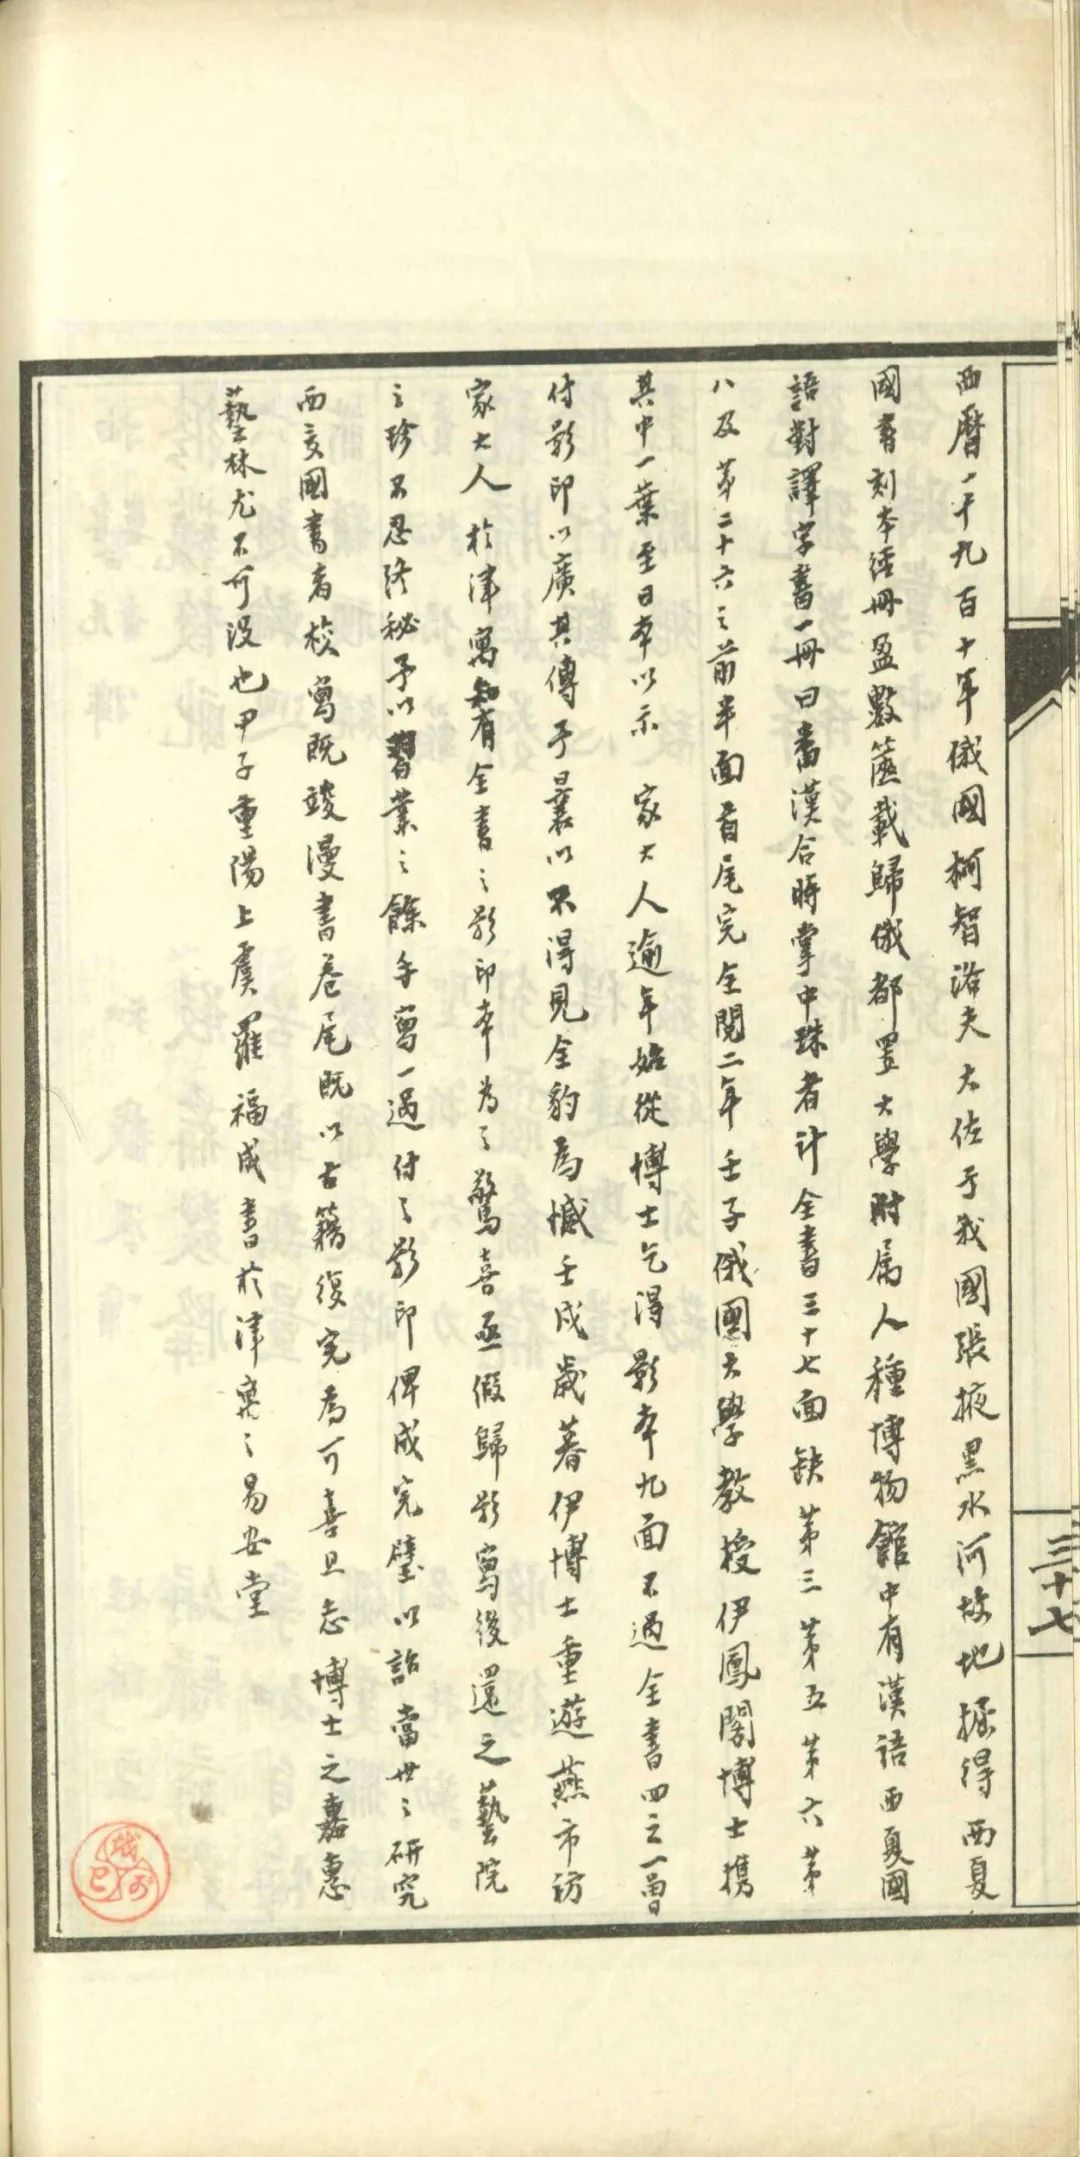 西曆一千九百十年俄國柯智洛夫大佐于我國張掖黑水河故地掘得西夏
國書刻本經冊盈數篋載歸俄都置大學附属人種博物館中有漢語西夏國
語對譯字書一冊曰番漢合時掌中珠者計全書三十七面缺第三第五第六第
八及第二十六之前半面首尾完全閱二年壬子俄國大學教授伊鳳閣博士携
其中一葉至日本以示 家大人逾年始從博士乞得影本九面不過全書四之一曾
付影印以廣其傳予曩以不得見全豹為憾壬戌歲暮伊博士重遊燕市訪
家大人於津寓知有全書之影印本為之驚喜亟假歸影寫後還之藝院
之珍不忍終秘予以習業之餘手寫一過付之影印俾成完璧以詒當世之研究
西夏國書者校寫既竣漫書卷尾既以古籍復完為可喜且志博士之嘉惠
藝林尤不可没也甲子重陽上虞羅福成書於津寓之易安堂
三十七